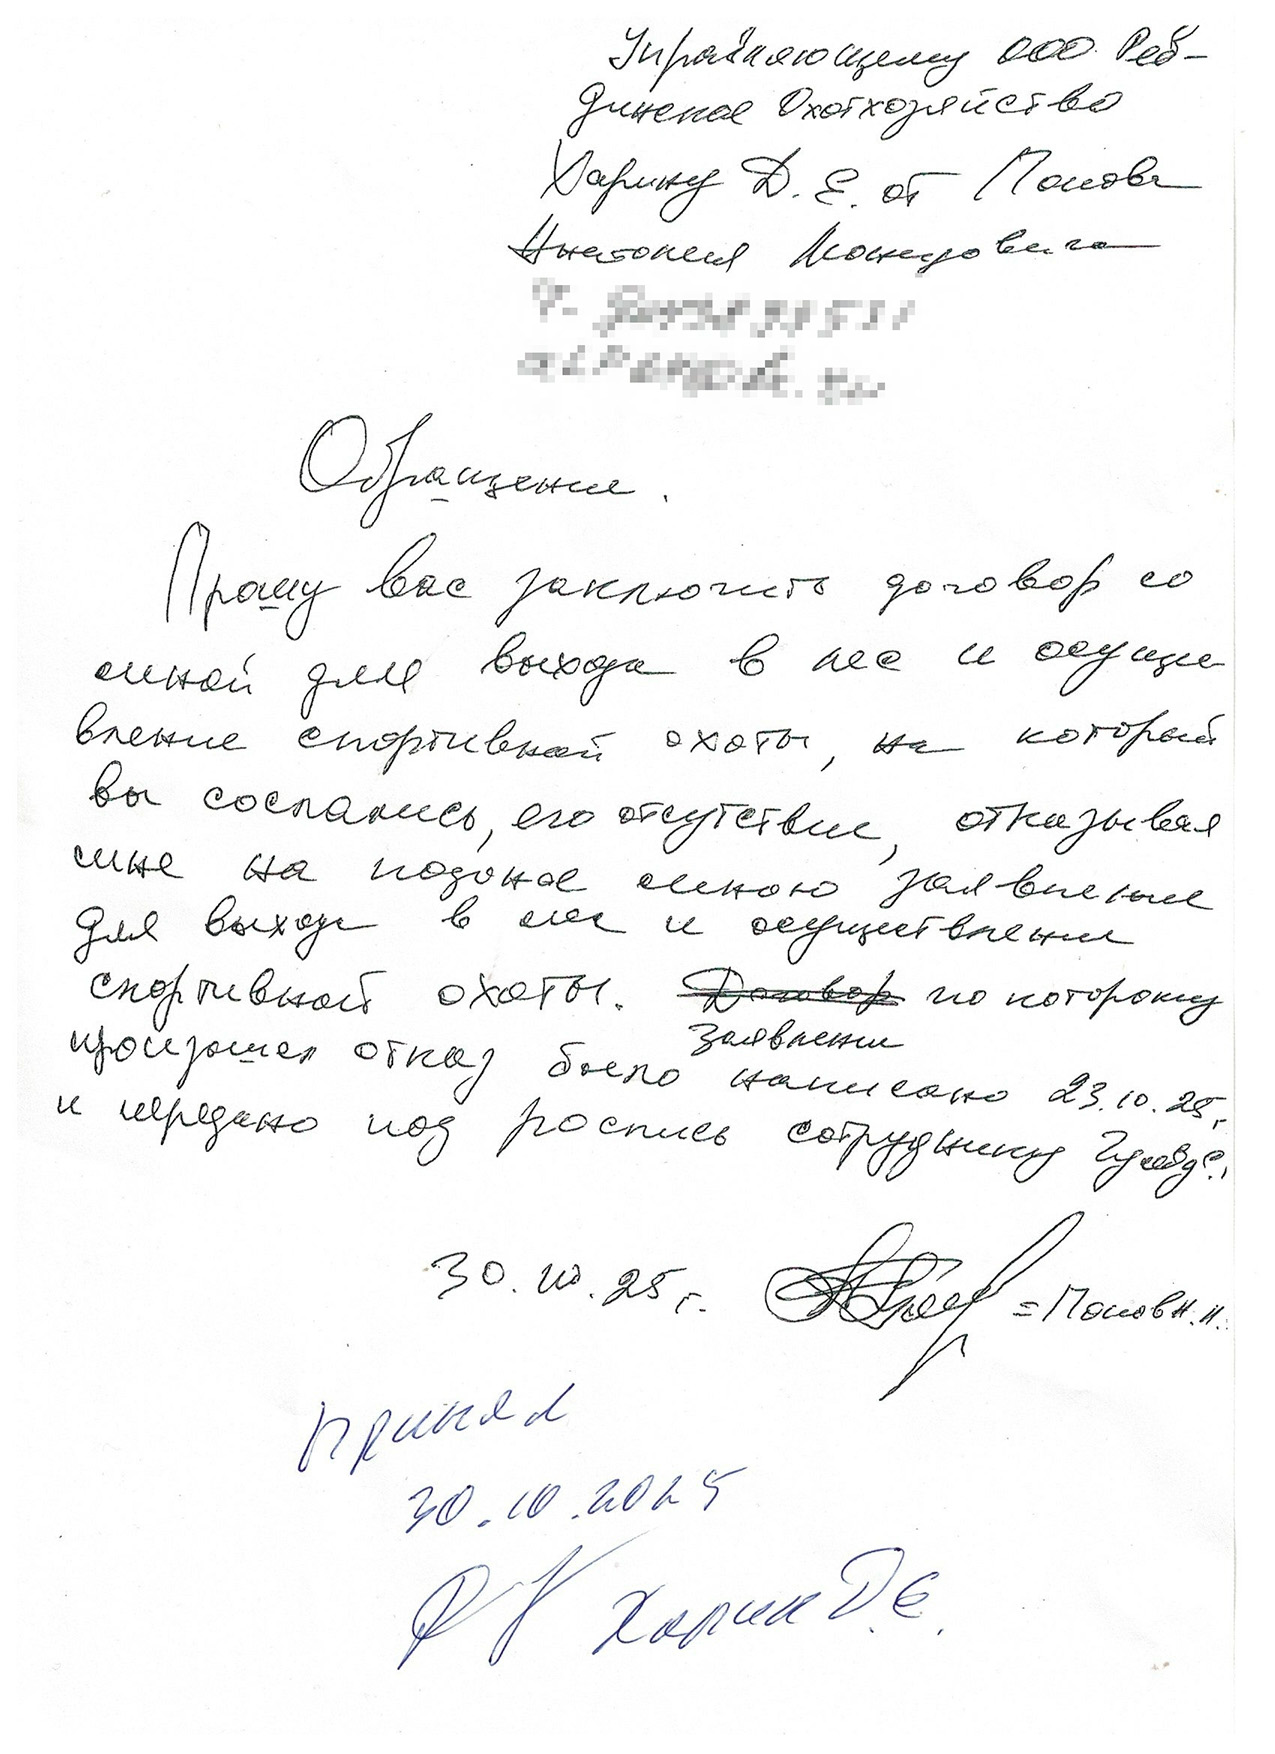 Управляющему ООО Реб-
динское Охотхозяйство
Харину Д. Е. от Попова
Анатолия
Обращение.
Прошу вас заключить договор со
мной для выхода в лес и осуще
вление спортивной охоты, на который
вы сослались, его отсутствие, отказывая
мне на поданое мною заявление
для выхода в лес и осуществлении
спортивной охоты. Договор по которому
заявлении
произошел отказ было написано 23.10.25г.
и передано под роспись сотруднику
30.10.25г. = Попов А. Л.
Принял
30.10.2025
Харин Д. Е.